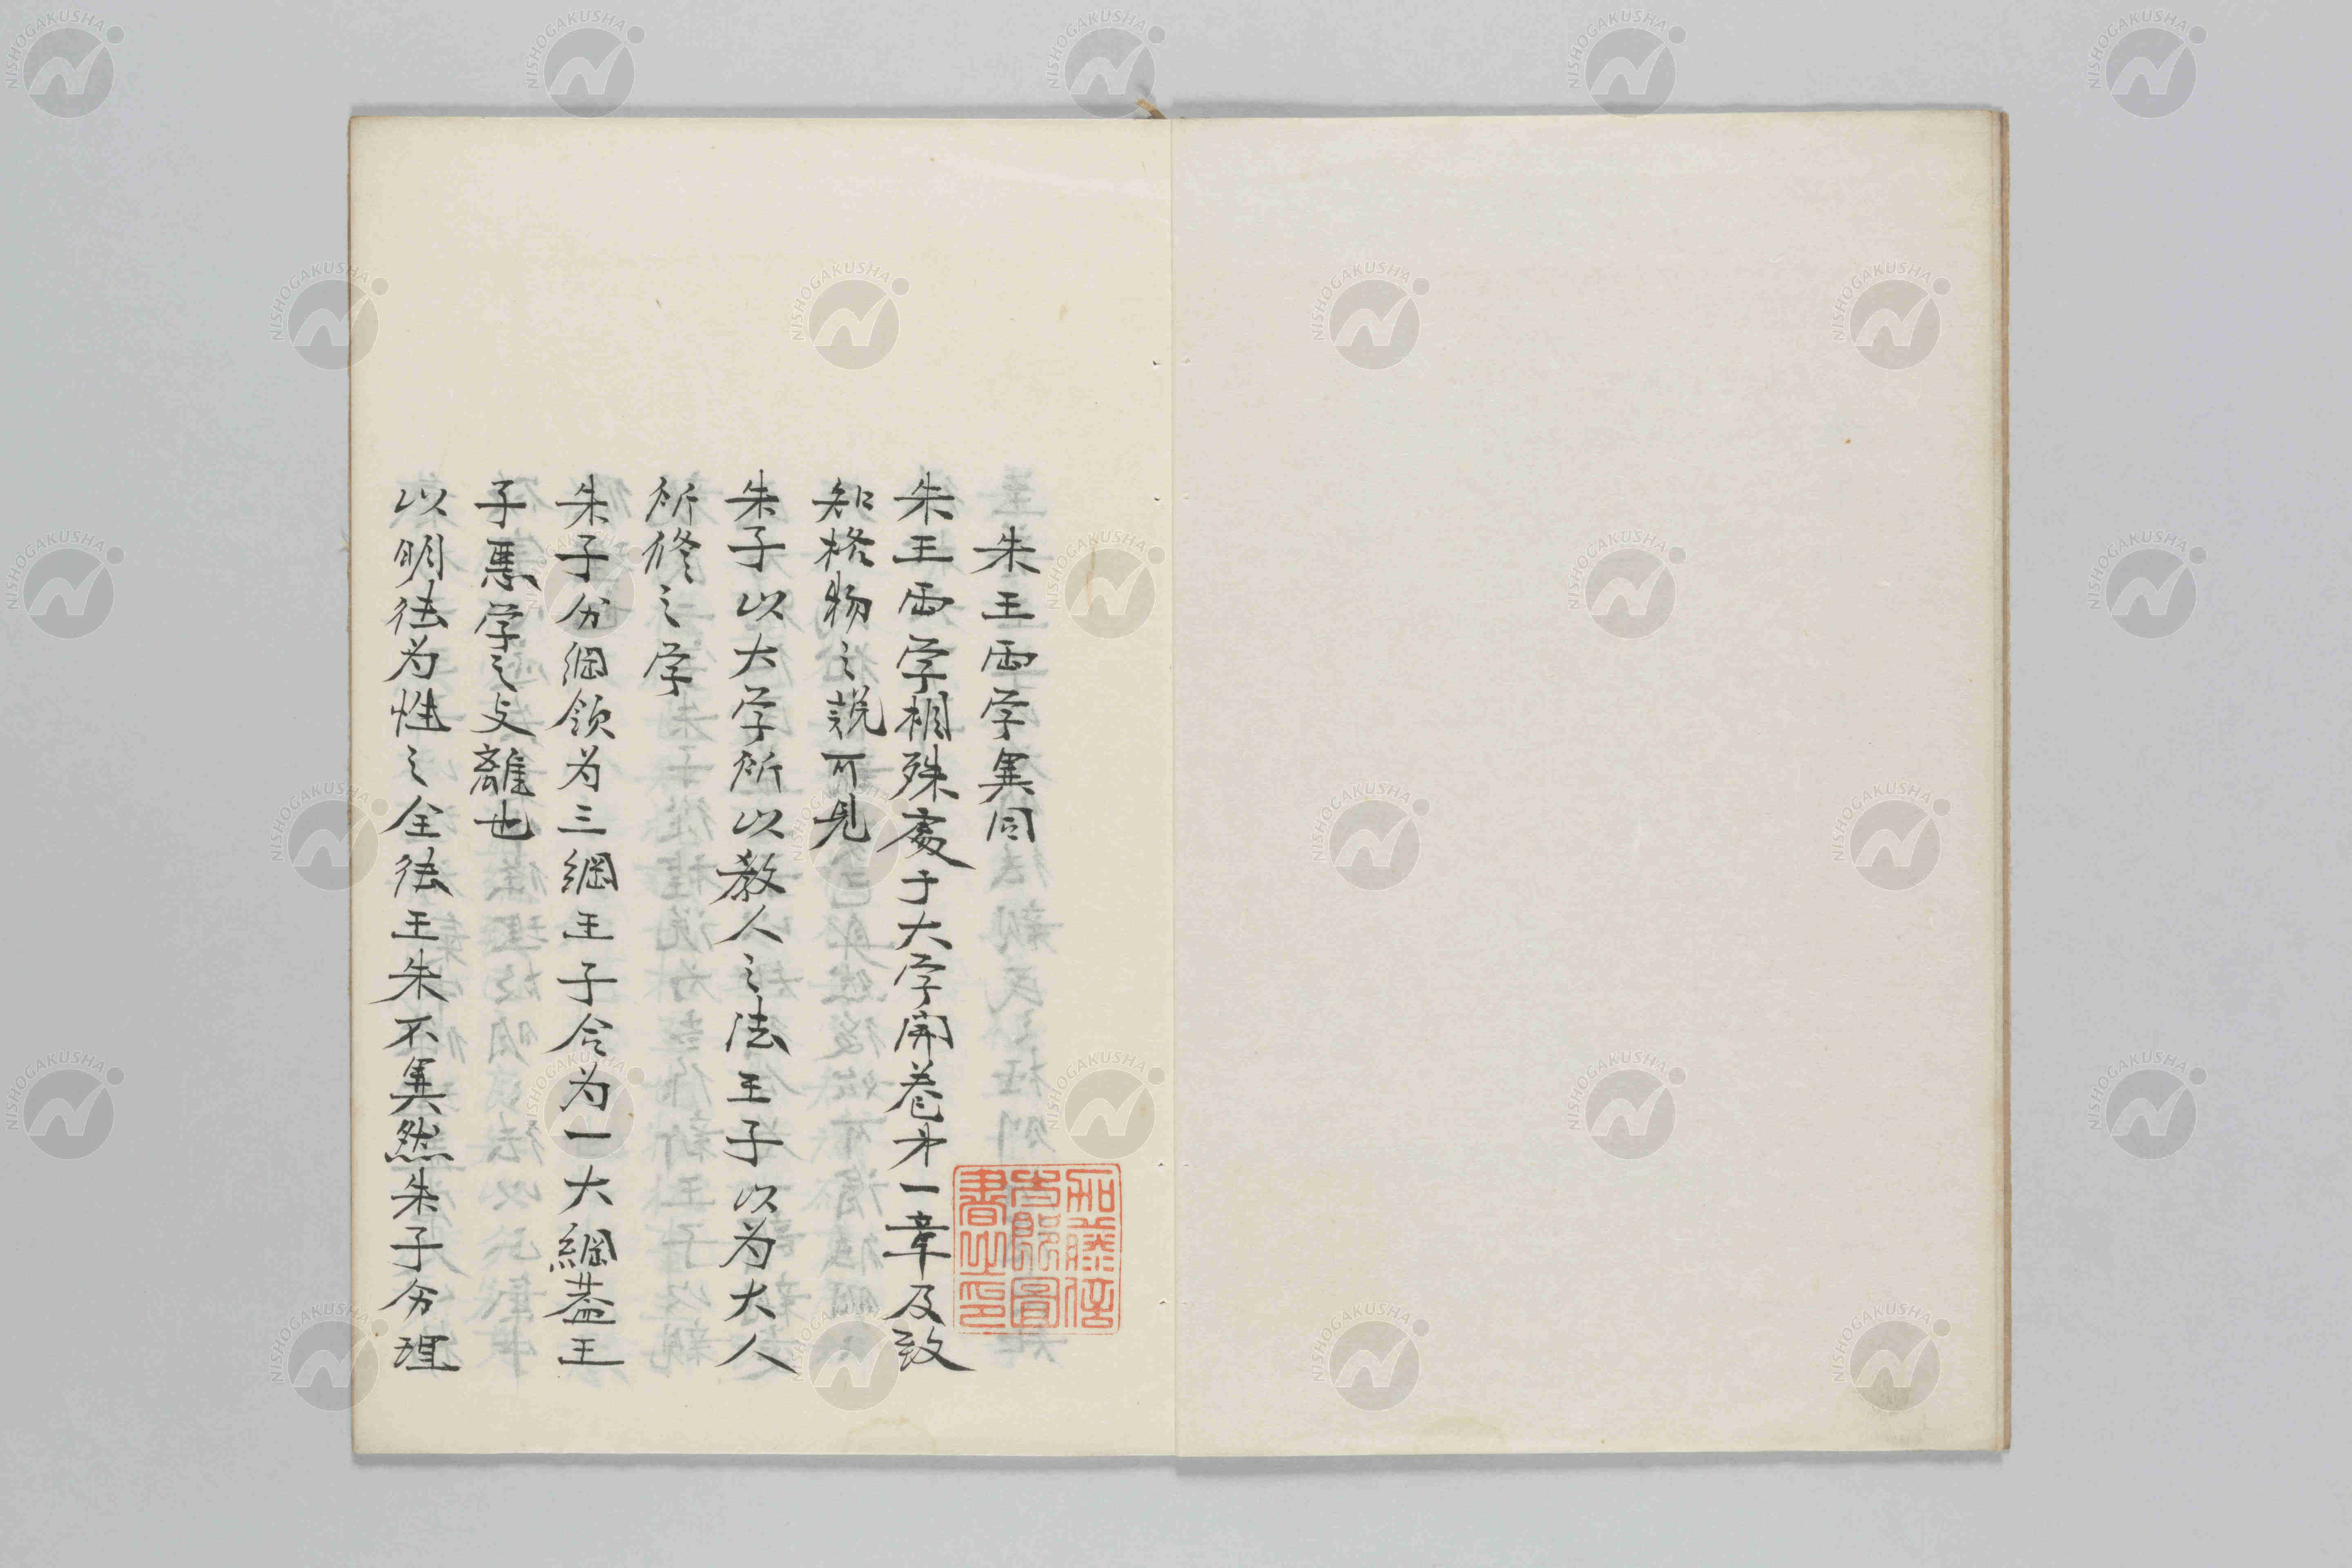 朱王両学異同
朱王両学相殊處于大学開巻才一章及致
知格物之説可見
朱子以大学所以教人之法王子以为大人
所修之学
朱子分綱領为三綱王子合为一大綱蓋王
子悪学之支離也
以明徳为性之全徳王朱不異然朱子分理
加藤倍
書之印
NISHOGAKUSHA